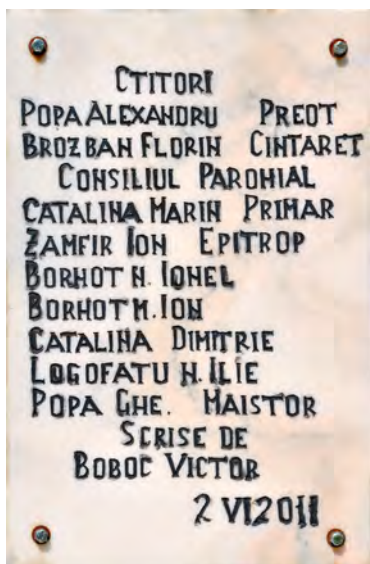 CTITORI
POPA ALEXANDRU PREOT
BROZBAN FLORIN CINTARET
CONSILIUL PAROHIAL
CATALINA MARIN PRIMAR
ZAMFIR ION EPITROP
BORHOT N. IONEL
BORHOT M. ION
CATALINA DIMITRIE
LOGOFATU N. ILIE
POPA GHE. MAISTOR
SCRISE DE
BOBOC VICTOR
2 VI 2011